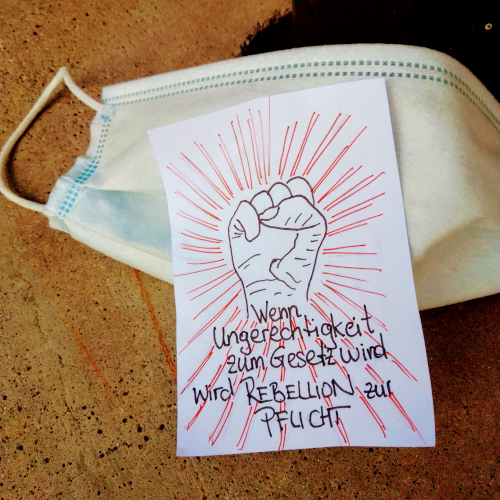 Wenn
Ungerechtigkeit
zum Gesetz wird
wird REBELLION zur
PFLICHT